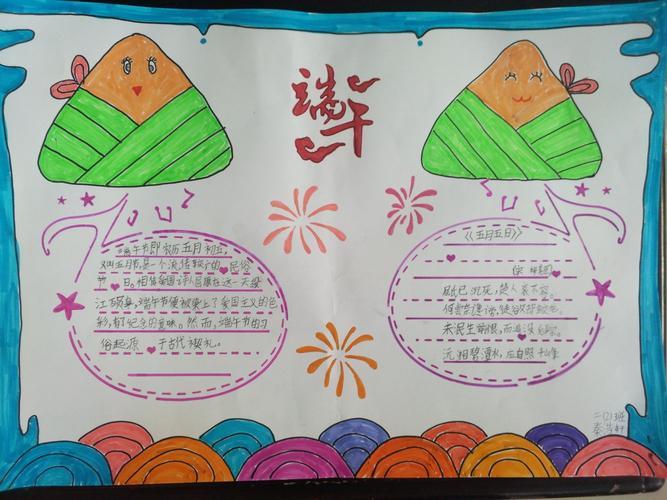 端午
端午节即农历五月初五,
又叫五月节,是一个流传较广的民俗
节日。相传爱国诗人屈原在这一天投
江殉身,端午节便被染上了爱国主义的色
彩,有了纪念的意味。然而,端午节的习
俗起源于古代祭礼。
《五月五日》
屈氏已沉死,楚人哀不容。
何尝奈谗谤,徒欲却蛟龙。
未民生前恨,而追没后踪。
沅湘碧潭水,应自照千峰
二(2)班